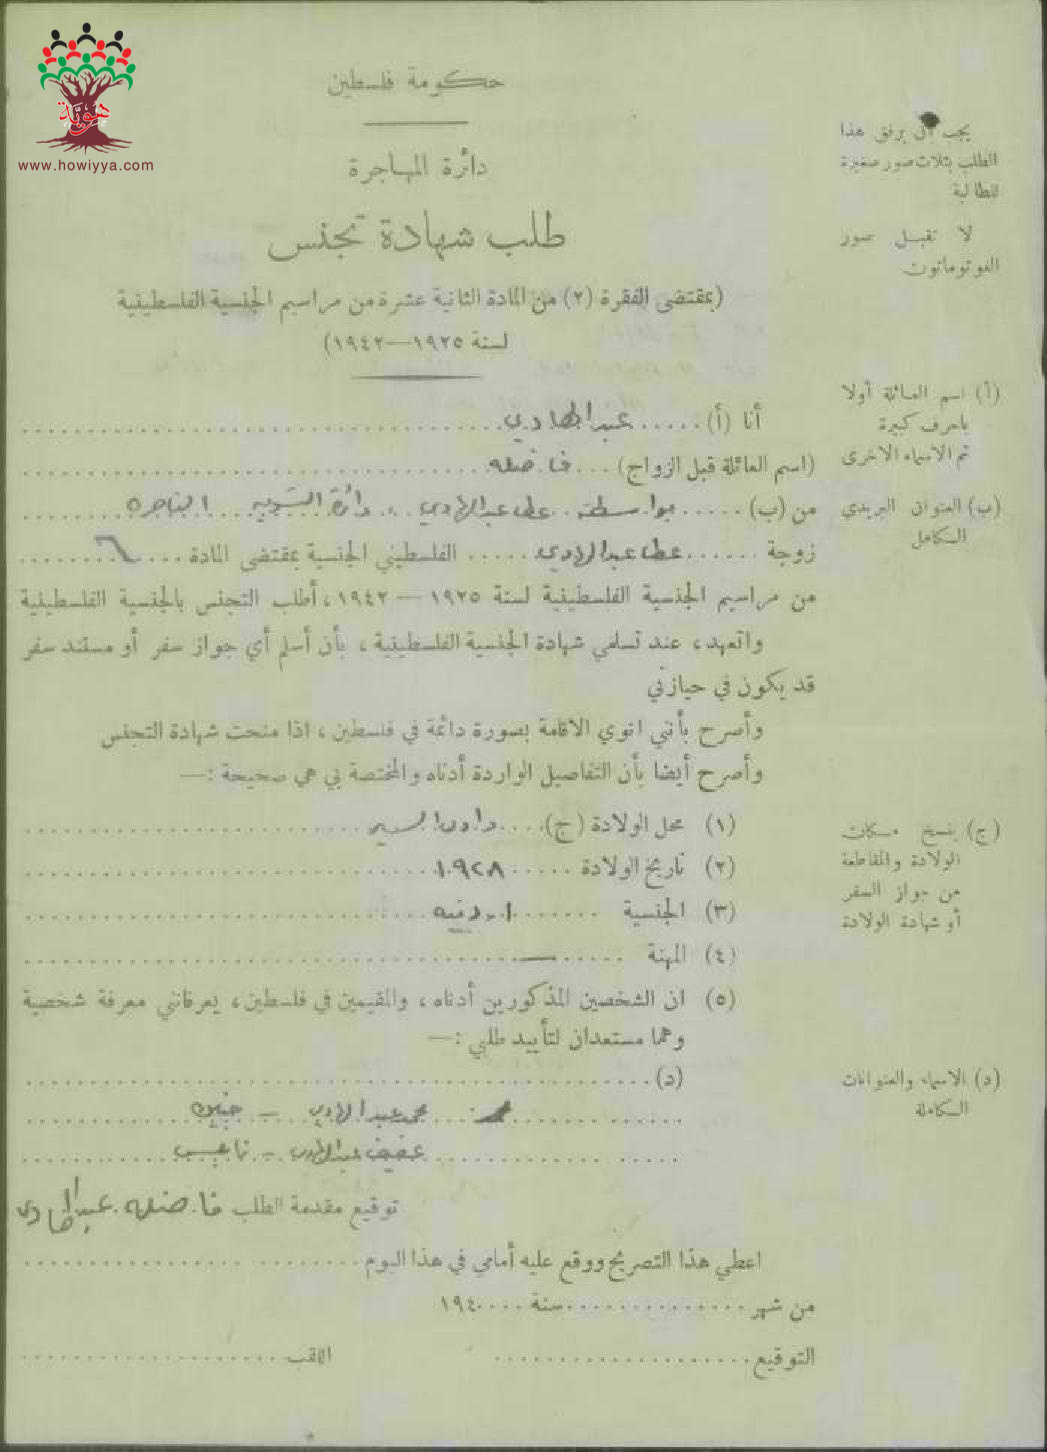 هوية
www.howiyya.com
حكومة فلسطين
دائرة المهاجرة
طلب شهادة تجنس
(بمقتضى الفقرة (٢) من المادة الثانية عشرة من مراسيم الجنسية الفلسطينية
لسنة ١٩٢٥—١٩٤٢)
يجب أن يرفق هذا
الطلب بثلاث صور صغيرة
للطالبة
لا تقبل صور
الفوتوماتون
(أ) اسم العائلة أولا
باحرف كبيرة
ثم الاسماء الاخرى
(ب) العنوان البريدي
الكامل
أنا (أ) ..... عبد الهادي
(اسم العائلة قبل الزواج) ... فاضله
من (ب) ..... بواسطة .. علي عبد الهادي .. دائرة التسويه .. الناصره
زوجة ...... عطا عبد الهادي ..... الفلسطيني الجنسية بمقتضى المادة ... ٦
من مراسيم الجنسية الفلسطينية لسنة ١٩٢٥ — ١٩٤٢، أطلب التجنس بالجنسية الفلسطينية
واتعهد، عند تسلمي شهادة الجنسية الفلسطينية، بأن أسلم أي جواز سفر أو مستند سفر
قد يكون في حيازتي
وأصرح بأنني انوي الاقامة بصورة دائمة في فلسطين، اذا منحت شهادة التجنس
وأصرح أيضا بأن التفاصيل الواردة أدناه والمختصة بي هي صحيحة :—
(١) محل الولادة (ج) .... وادي السير
(٢) تاريخ الولادة ..... ١٩٢٨
(٣) الجنسية ....... اردنيه
(٤) المهنة ...... —
(٥) ان الشخصين المذكورين أدناه، والمقيمين في فلسطين، يعرفانني معرفة شخصية
وهما مستعدان لتأييد طلبي :—
(ج) ينسخ مكان
الولادة والمقاطعة
من جواز السفر
أو شهادة الولادة
(د) الاسماء والعنوانات
الكاملة
(د)
محمد عبد الهادي — جنين
عفيف عبد الهادي — نابلس
توقيع مقدمة الطلب فاضله عبد الهادي
اعطي هذا التصريح ووقع عليه أمامي في هذا اليوم
من شهر .............. سنة .... ١٩٤
التوقيع .................... اللقب ....................